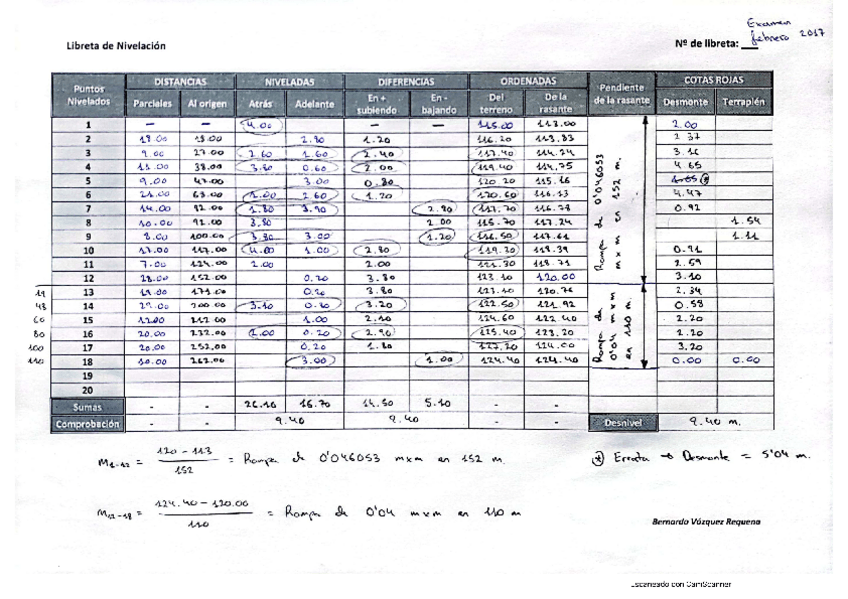 Examen
febrero 2017
Libreta de Nivelación Nº de libreta:
Puntos Nivelados DISTANCIAS NIVELADAS DIFERENCIAS ORDENADAS Pendiente de la rasante COTAS ROJAS
Parciales Al origen Atrás Adelante En + subiendo En - bajando Del terreno De la rasante Desmonte Terraplén
1 — — 4.00 — — 115.00 113.00 2.00
2 18.00 18.00 2.80 1.20 116.20 113.83 2.37
3 9.00 27.00 2.60 1.60 2.40 117.40 114.24 3.16
4 11.00 38.00 3.80 0.60 2.00 119.40 114.75 4.65
5 9.00 47.00 3.00 0.80 120.20 115.16
6 63.00 1.00 2.60 1.20 120.60 116.13 4.47
7 14.00 1.80 3.90 2.90 117.70 116.78 0.92
8 10.00 3.80 2.00 115.70 117.24 1.54
9 8.00 100.00 3.80 3.00 1.20 116.50 117.61 1.11
10 17.00 117.00 4.00 1.00 2.80 119.30 118.39 0.91
11 7.00 124.00 2.00 2.00 121.30 118.71 2.59
12 28.00 152.00 0.20 3.80 123.10 120.00 3.10
19 13 19.00 171.00 0.20 3.80 123.10 120.76 2.34
48 14 29.00 200.00 3.10 0.80 3.20 122.50 121.92 0.58
60 15 12.00 212.00 1.00 2.10 124.60 122.40 2.20
80 16 20.00 232.00 2.00 0.20 2.90 125.40 123.20 2.20
100 17 20.00 252.00 0.20 1.80 127.20 124.00 3.20
110 18 10.00 262.00 3.00 1.00 124.40 124.40 0.00 0.00
19
20
Rampa de 0'046053 m x m en 152 m.
Rampa de 0'04 m x m en 110 m.
Sumas - - 26.10 16.70 14.50 5.10 - - - -
Comprobación - - 9.40 9.40 - - Desnivel 9.40 m.
M1-12 = 120 - 113 / 152 = Rampa de 0'046053 mxm en 152 m.
(*) Errata → Desmonte = 5'04 m.
M12-18 = 124.40 - 120.00 / 110 = Rampa de 0'04 mxm en 110 m
Bernardo Vázquez Requena
Escaneado con CamScanner